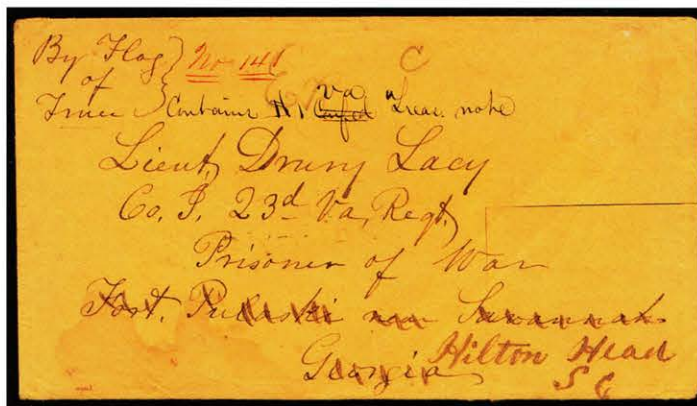 By Flag } No 141 C
of
Truce } Contains $1, Va Confed Treas. note
Lieut, Drury Lacy
Co. I. 23d Va, Regt,
Prisoner of War
Fort. Pulaski near Savannah
Georgia Hilton Head
S C